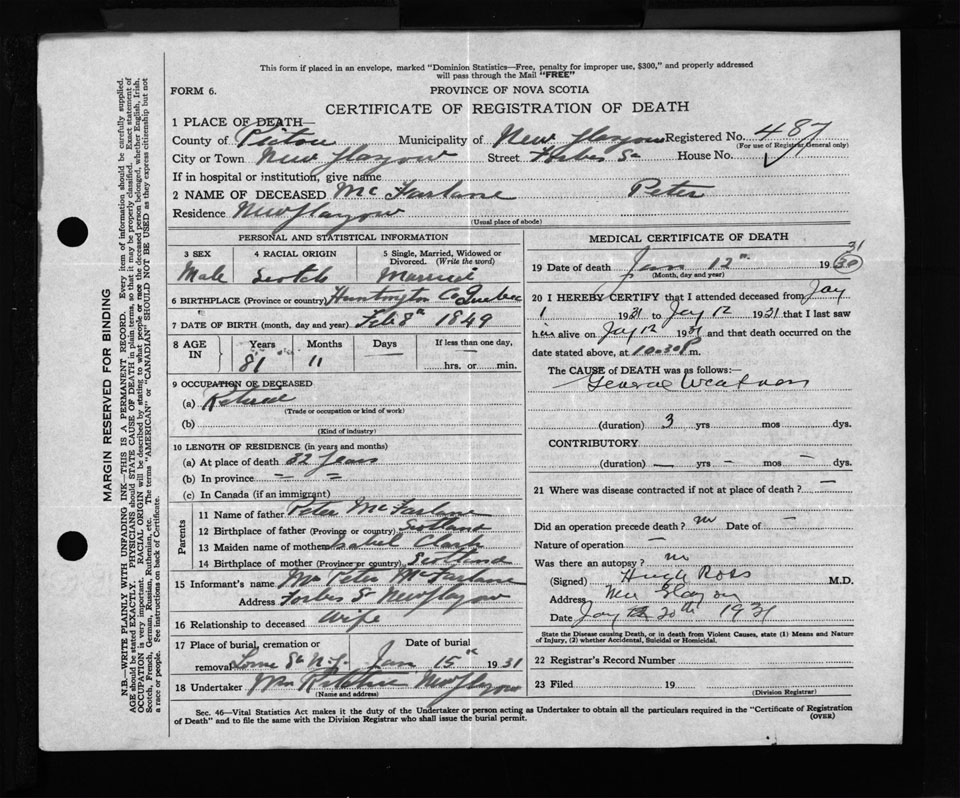 This form if placed in an envelope, marked "Dominion Statistics—Free, penalty for improper use, $300," and properly addressed
will pass through the Mail "FREE"
FORM 6.
PROVINCE OF NOVA SCOTIA
CERTIFICATE OF REGISTRATION OF DEATH
1 PLACE OF DEATH—
County of Pictou Municipality of New Glasgow Registered No. 487
(For use of Registrar General only)
City or Town New Glasgow Street Forbes St House No.
If in hospital or institution, give name
2 NAME OF DECEASED McFarlane Peter
Residence New Glasgow
(Usual place of abode)
PERSONAL AND STATISTICAL INFORMATION
3 SEX 4 RACIAL ORIGIN 5 Single, Married, Widowed or
Divorced. (Write the word)
Male Scotch Married
6 BIRTHPLACE (Province or country) Huntington Co Quebec
7 DATE OF BIRTH (month, day and year) Feb 8th 1849
8 AGE IN Years Months Days If less than one day,
81 11 — hrs. or min.
9 OCCUPATION OF DECEASED
(a) Retired
(Trade or occupation or kind of work)
(b)
(Kind of industry)
10 LENGTH OF RESIDENCE (in years and months)
(a) At place of death 32 Years
(b) In province
(c) In Canada (if an immigrant)
Parents
11 Name of father Peter McFarlane
12 Birthplace of father (Province or country) Scotland
13 Maiden name of mother Isabel Clark
14 Birthplace of mother (Province or country) Scotland
15 Informant's name Mrs Peter McFarlane
Address Forbes St New Glasgow
16 Relationship to deceased Wife
17 Place of burial, cremation or Date of burial
removal Lorne St N.G. Jan 15th 1931
18 Undertaker Wm Ritchie New Glasgow
(Name and address)
MEDICAL CERTIFICATE OF DEATH
31
19 Date of death Jan 12th 1930
(Month, day and year)
20 I HEREBY CERTIFY that I attended deceased from Jay
1 1931 to Jay 12 1931 that I last saw
him alive on Jay 12 1931 and that death occurred on
date stated above, at 10.30 P m.
The CAUSE of DEATH was as follows:—
General Weakness
(duration) 3 yrs mos dys.
CONTRIBUTORY
(duration) — yrs — mos — dys.
21 Where was disease contracted if not at place of death? —
Did an operation precede death? no Date of —
Nature of operation —
Was there an autopsy? no
(Signed) Hugh Ross M.D.
Address New Glasgow
Date Jay 20th 1931
State the Disease causing Death, or in death from Violent Causes, state (1) Means and Nature
of Injury, (2) whether Accidental, Suicidal or Homicidal.
22 Registrar's Record Number
23 Filed 19
(Division Registrar)
Sec. 46—Vital Statistics Act makes it the duty of the Undertaker or person acting as Undertaker to obtain all the particulars required in the "Certificate of Registration
of Death" and to file the same with the Division Registrar who shall issue the burial permit.
(OVER)
MARGIN RESERVED FOR BINDING
N.B.—WRITE PLAINLY WITH UNFADING INK—THIS IS A PERMANENT RECORD. Every item of information should be carefully supplied.
AGE should be stated EXACTLY. PHYSICIANS should STATE CAUSE OF DEATH in plain terms, so that it may be properly classified. Exact statement of
OCCUPATION is very important. RACIAL ORIGIN will be described by stating to what people or race the deceased person belonged, whether English, Irish,
Scotch, French, German, Russian, Ruthenian, etc. The terms "AMERICAN" or "CANADIAN" SHOULD NOT BE USED as they express citizenship but not
a race or people. See instructions on back of Certificate.